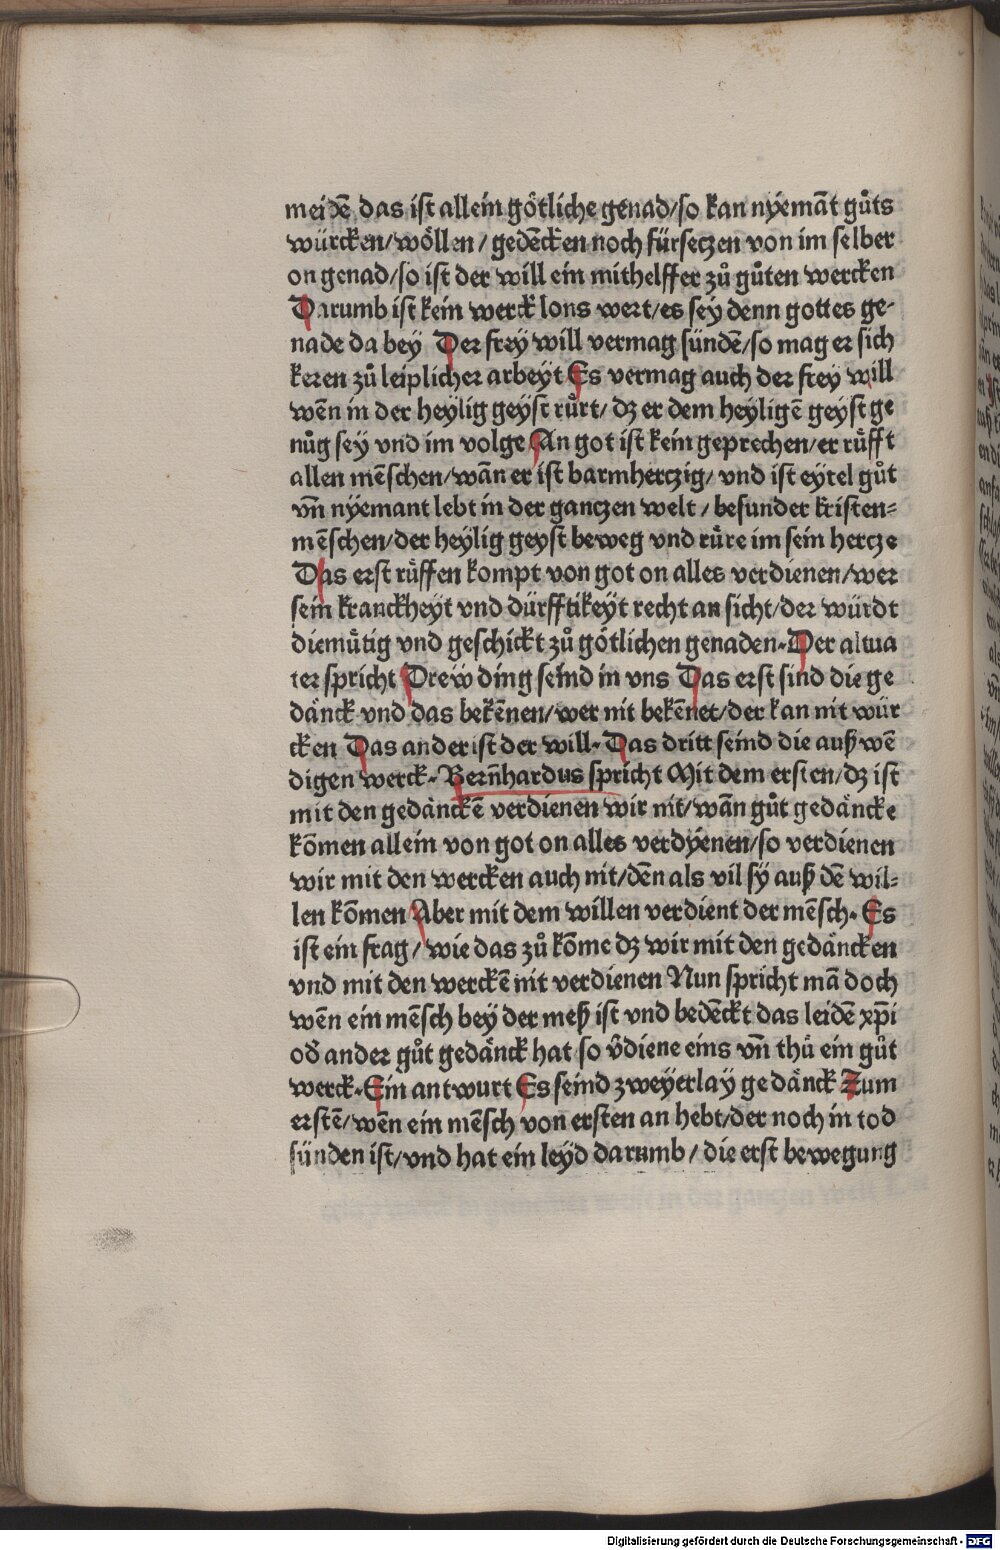 meidē das ist allein götliche genad/so kan nyemāt gůts
würcken/wöllen/gedēcken noch fürseczen von im selber
on genad/so ist der will ein mithelffer zů gůten wercken
Darumb ist kein werck lons wert/es sey denn gottes ge-
nade da bey Der frey will vermag sündē/so mag er sich
keren zů leiplicher arbeyt Es vermag auch der frey will
wēn in der heylig geyst růrt/dz er dem heyligē geyst ge
nůg sey vnd im volge An got ist kein geprechen/er růfft
allen mēschen/wān er ist barmherczig/vnd ist eytel gůt
vn̄ nyemant lebt in der ganczen welt/besunder kristen-
mēschen/der heylig geyst beweg vnd růre im sein hercze
Das erst růffen kompt von got on alles verdienen/wer
sein kranckheyt vnd dürfftikeyt recht an sicht/der würdt
diemůtig vnd geschickt zů götlichen genaden. Der altua
ter spricht Drew ding seind in vns Das erst sind die ge
dänck vnd das bekēnen/wer nit bekēnet/der kan nit wür
cken Das ander ist der will. Das dritt seind die außwē
digen werck. Bern̄hardus spricht Mit dem ersten/dz ist
mit den gedänckē verdienen wir nit/wān gůt gedäncke
kōmen allein von got on alles verdyenen/so verdienen
wir mit den wercken auch nit/dēn als vil sy auß dē wil-
len kōmen Aber mit dem willen verdient der mēsch. Es
ist ein frag/wie das zů kōme dz wir mit den gedäncken
vnd mit den werckē nit verdienen Nun spricht mā doch
wēn ein mēsch bey der meß ist vnd bedēckt das leidē xp̄i
od̄ ander gůt gedänck hat so v̄diene eins vn̄ thů ein gůt
werck. Ein antwurt Es seind zweyerlay gedänck Zum
erstē/wēn ein mēsch von ersten an hebt/der noch in tod
sünden ist/vnd hat ein leyd darumb/die erst bewegung
Digitalisierung gefördert durch die Deutsche Forschungsgemeinschaft - DFG